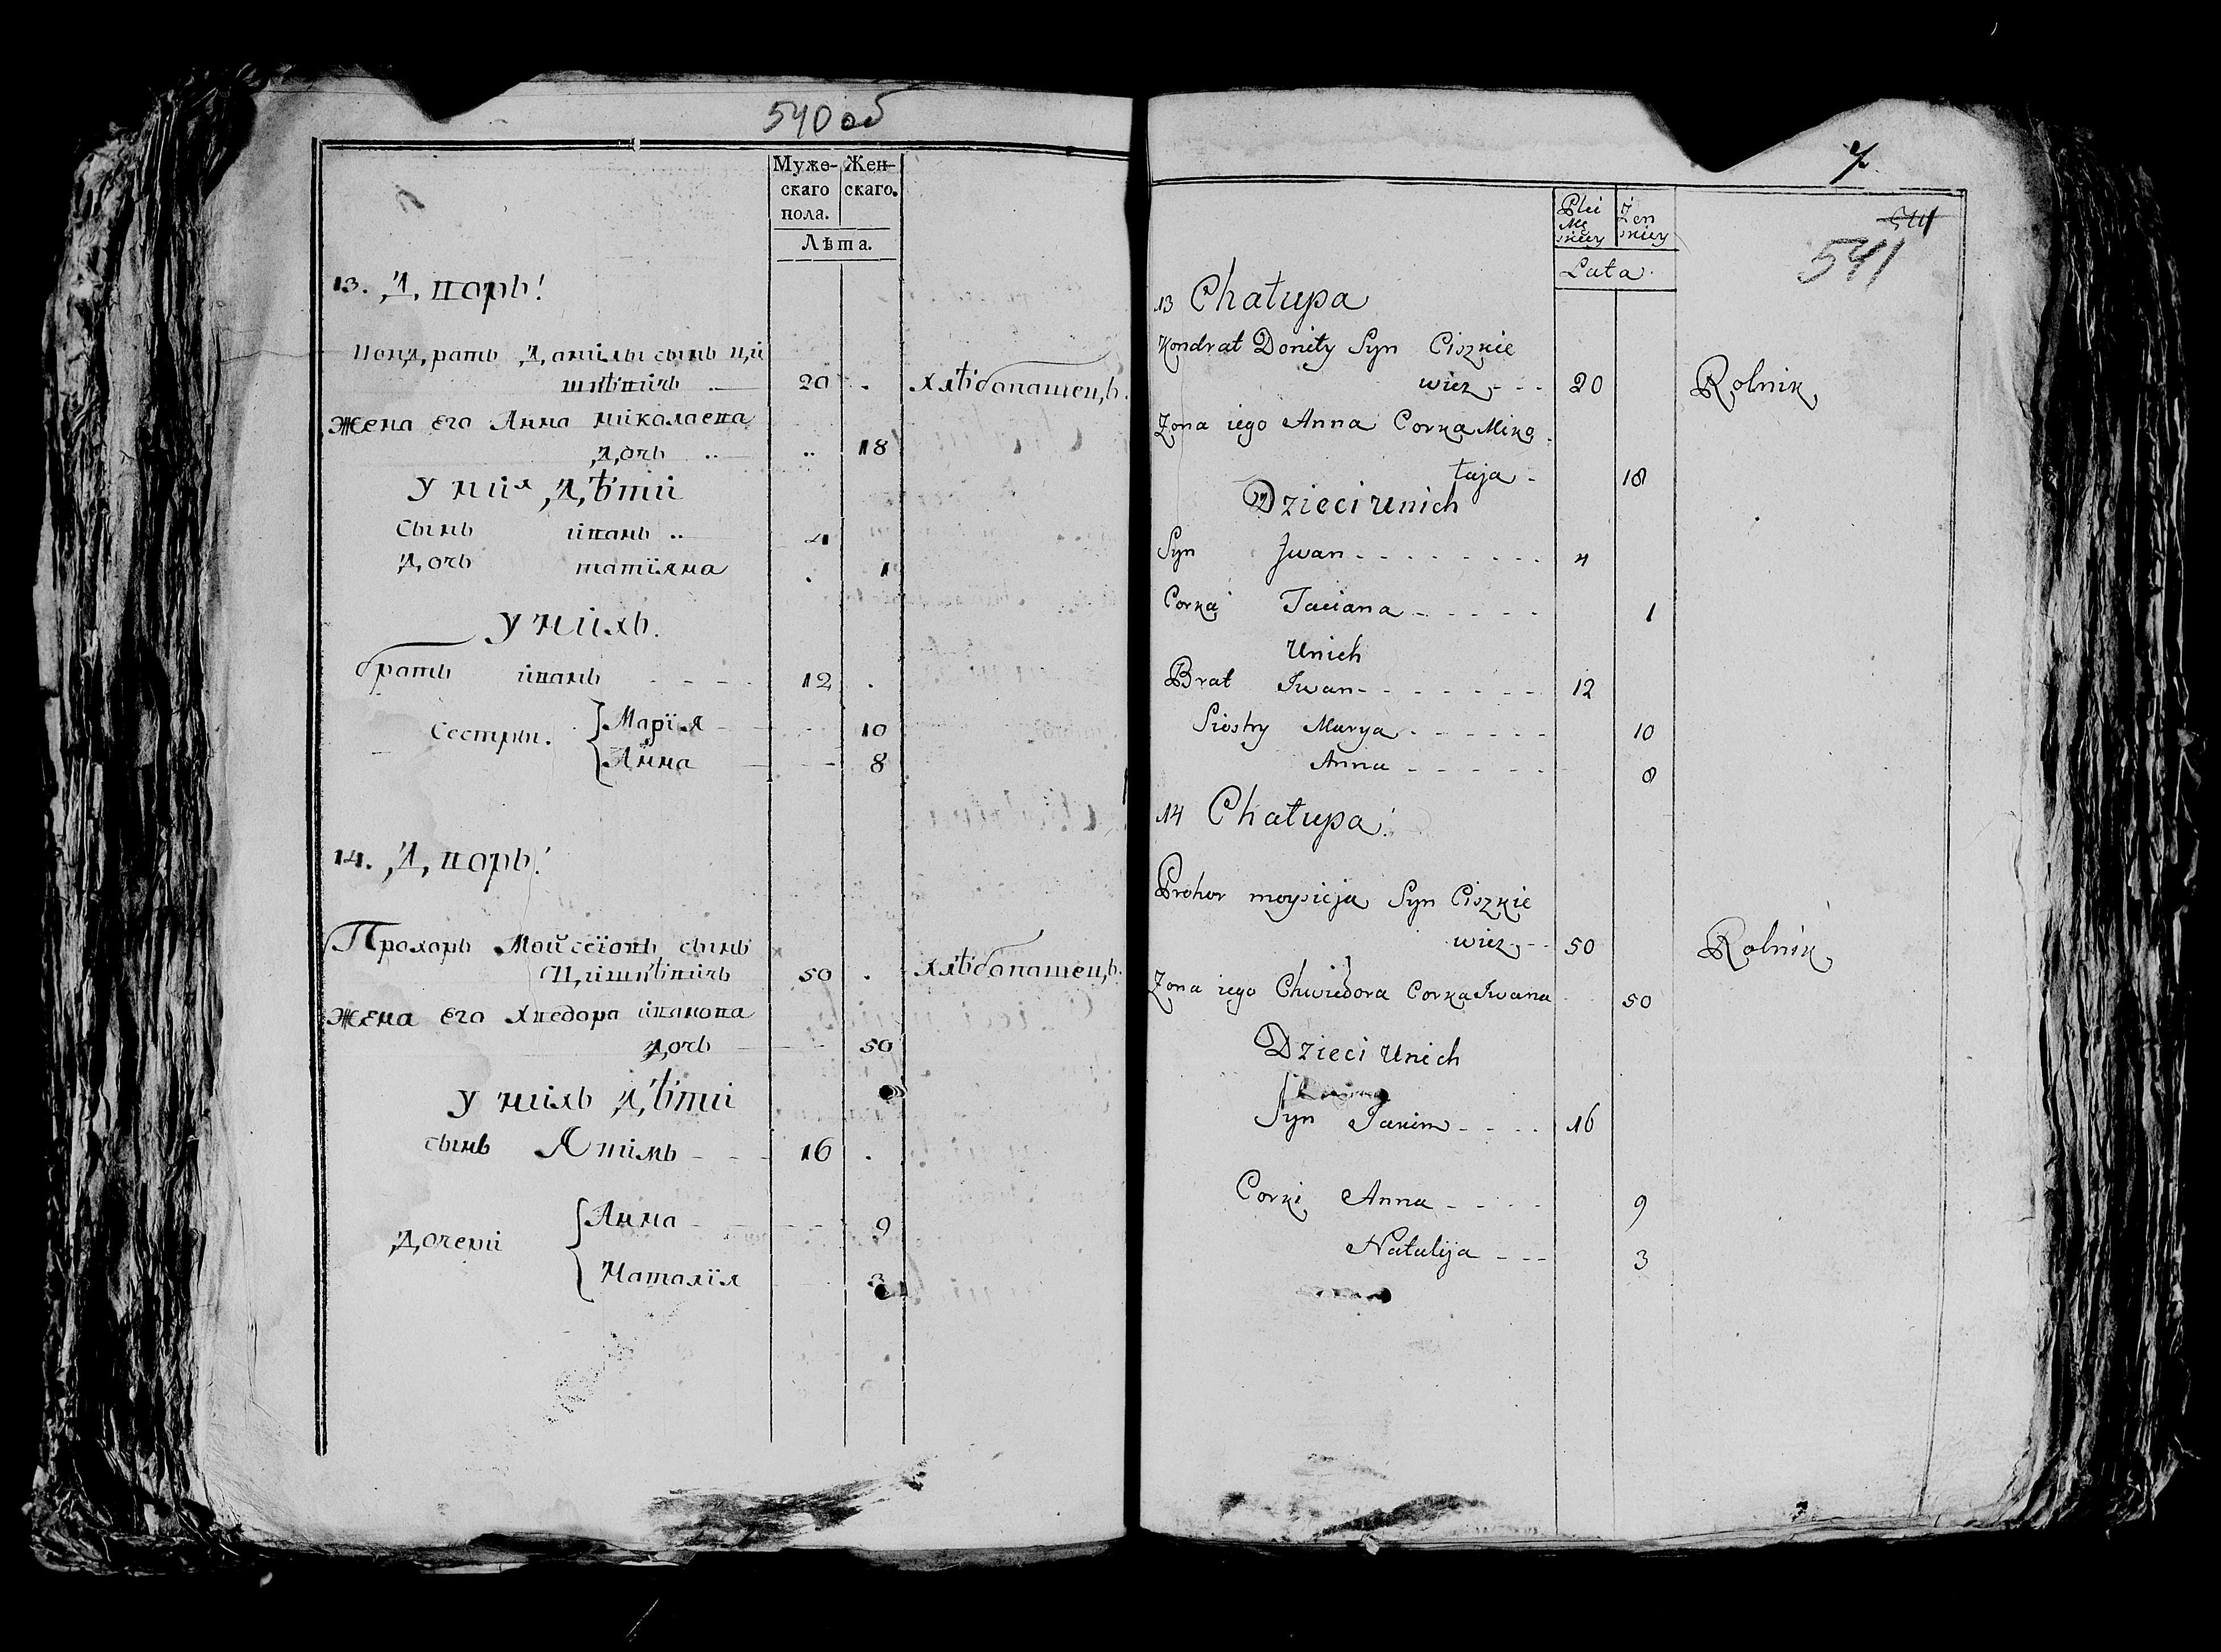 540 об
Муже-
скаго
пола.
Жен-
скаго.
Лѣта.
13. Дворъ!
Кондратъ Данилы сынъ Ци
шкѣвичъ 20 . хлѣбопашецъ.
Жена его Анна николаева
дочь .. 18
У них дѣти
Сынъ иванъ .. 4
Дочь татїяна . 1
У нихъ.
братъ иванъ 12 .
Сестры. Марїя 10
Анна 8
14. Дворъ!
Прохоръ Мойсїовъ сынъ
Цишкѣвичъ 50 . хлѣбопашецъ.
Жена его хведора иванова
дочь 50
У нихъ дѣти
сынъ Якимъ 16 .
Дочери Анна 9
Наталїя 3
7.
541
541
Plci
Mę
skiey
Żen
skiey
Lata.
13 Chałupa
Kondrat Doniły Syn Ciszkie
wicz 20 Rolnik
Zona iego Anna Corka Miko
łaja 18
Dzieci unich
Syn Jwan 4
Corka Taciana 1
Unich
Brat Jwan 12
Siostry Marya 10
Anna 8
14 Chałupa!
Prohor moysieja Syn Ciszkie
wicz 50 Rolnik
Zona iego Chwiedora Corka Jwana 50
Dzieci Unich
Syn Jakim 16
Corki Anna 9
Natalija 3